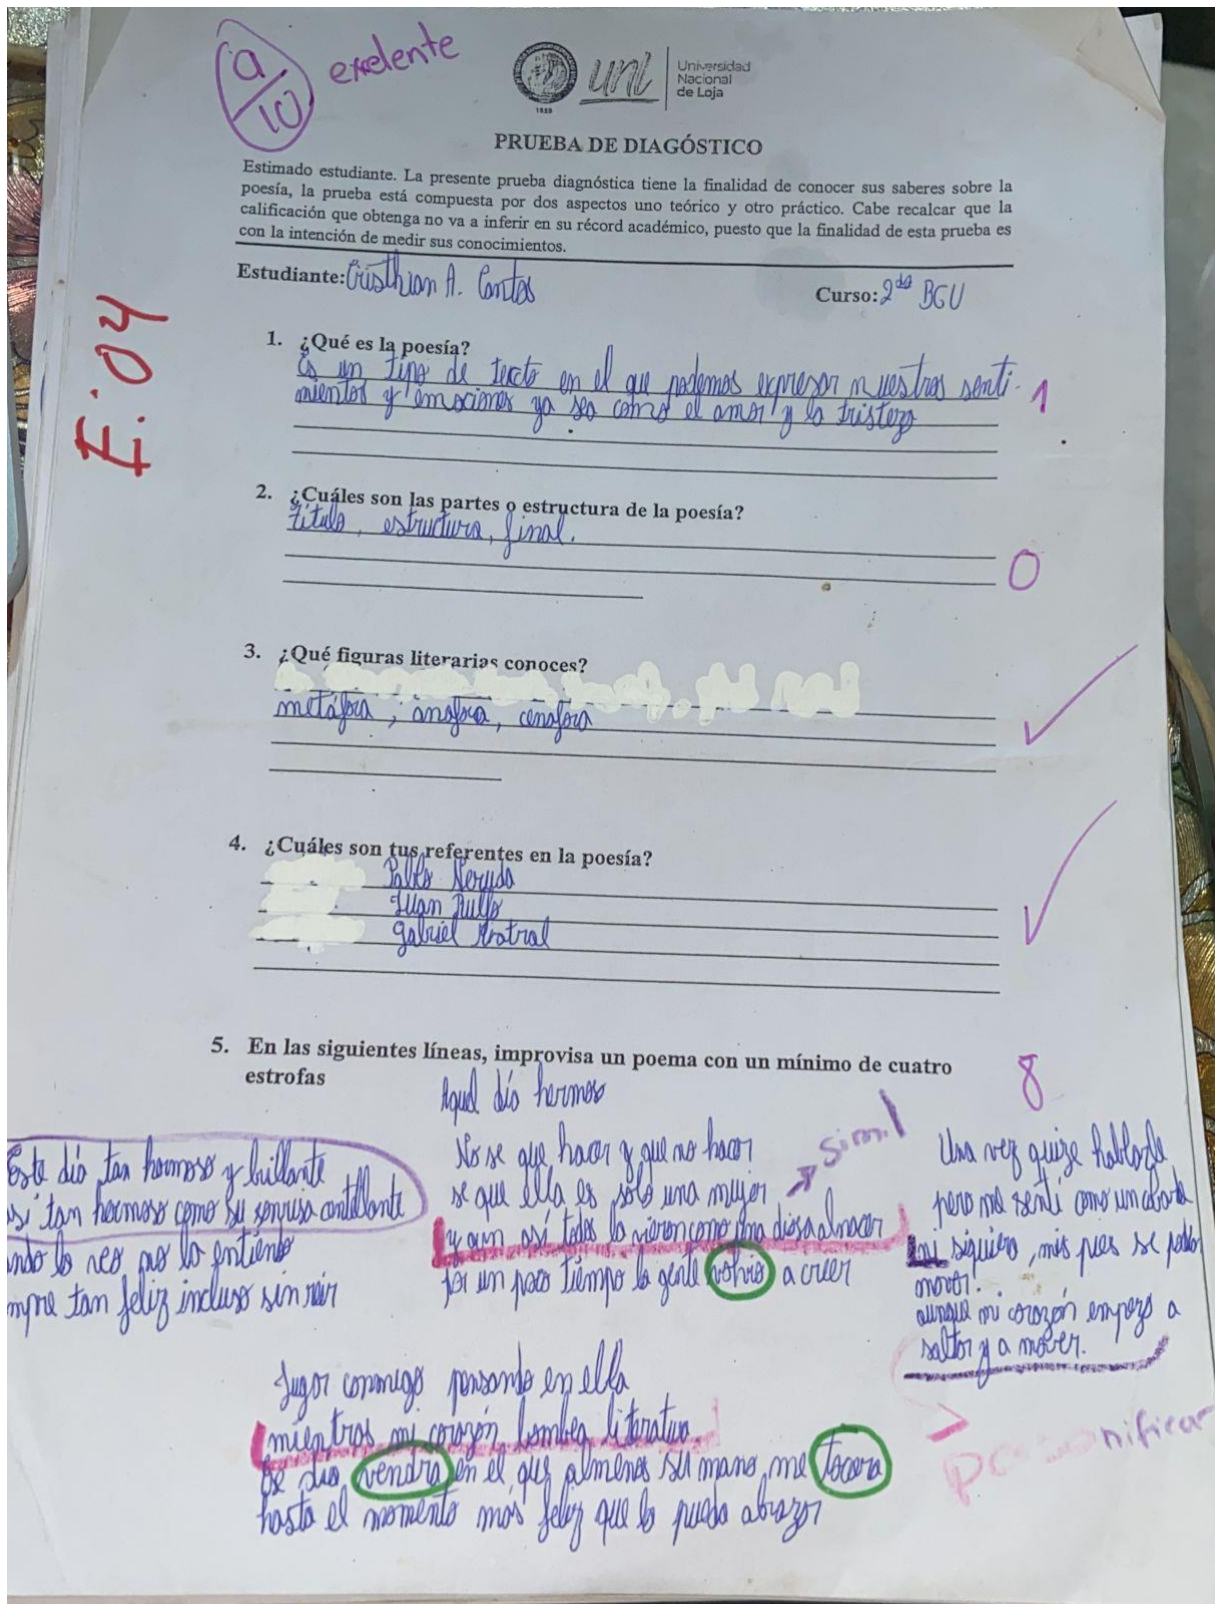 a
10
exelente
1859
unl
Universidad
Nacional
de Loja
PRUEBA DE DIAGÓSTICO
Estimado estudiante. La presente prueba diagnóstica tiene la finalidad de conocer sus saberes sobre la
poesía, la prueba está compuesta por dos aspectos uno teórico y otro práctico. Cabe recalcar que la
calificación que obtenga no va a inferir en su récord académico, puesto que la finalidad de esta prueba es
con la intención de medir sus conocimientos.
Estudiante: Cristhian A. Contos
Curso: 2do BGU
E:04
1. ¿Qué es la poesía?
Es un tipo de texto en el que podemos expresar nuestros senti-
mientos y emociones ya sea como el amor y la tristeza
1
2. ¿Cuáles son las partes o estructura de la poesía?
título, estructura, final.
0
3. ¿Qué figuras literarias conoces?
metáfora, anafora, cenafora
4. ¿Cuáles son tus referentes en la poesía?
Pablo Neruda
Juan Rulfo
gabriel Mistral
5. En las siguientes líneas, improvisa un poema con un mínimo de cuatro
estrofas
8
Aquel día hermoso
Este día tan hermoso y brillante
si tan hermoso como su sonrisa
ndo la veo no lo entiendo
mpre tan feliz incluso sin reir
No se que hacer y que no hacer
se que ella es solo una mujer
y aun así todos la vieron como una diosa al nacer
por un poco tiempo la gente volvio a creer
simil
Una vez quize hablarle
pero me senti como un cobarde
ni siquiera, mis pies se podia
mover!
aunque mi corazón empezo a
saltar y a mover.
Jugar conmigo pensando en ella
mientras mi corazón bombea literatura
dia vendra en el que almenos su mano me tocara
hasta el momento más feliz que la pueda abrazar
personificar